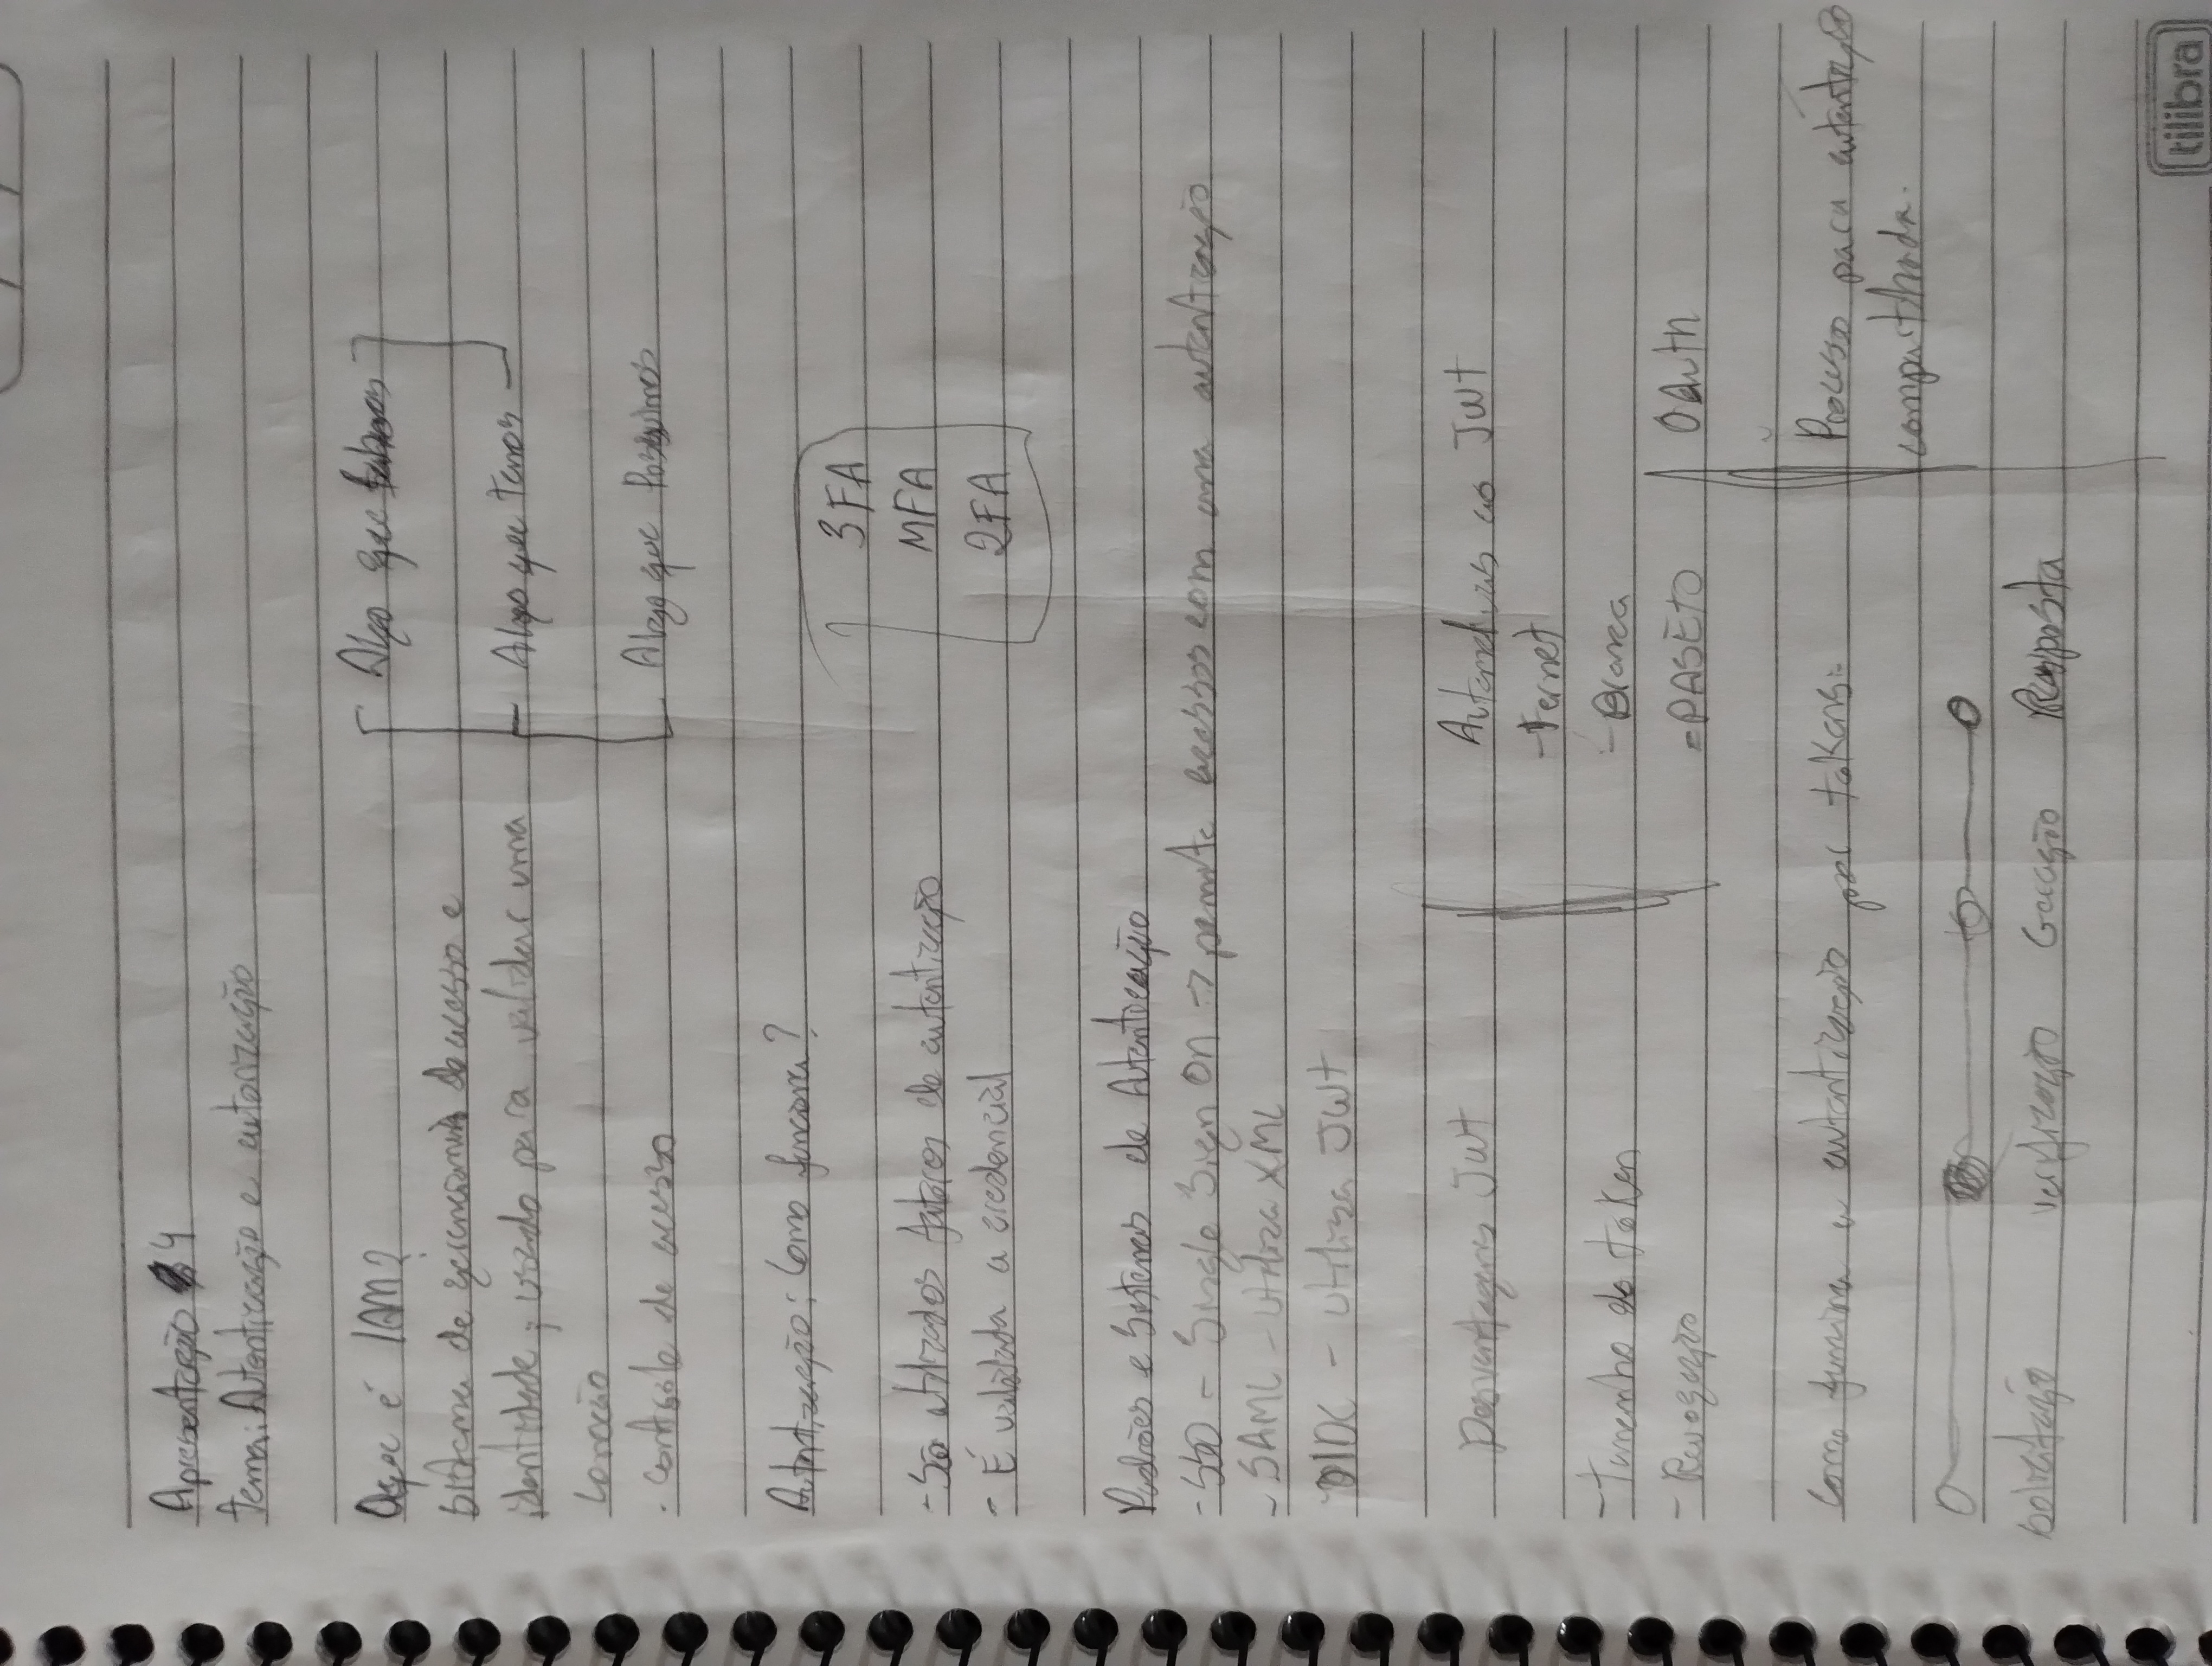 Apresentação 4
tema: Autenticação e autorização
O que é IAM?
sistema de gerenciamento de acesso e
identidade; usado para validar uma
conexão
. controle de acesso
Algo que sabemos
Algo que temos
Algo que Possuimos
Autenticação: Como funciona?
- São utilizados fatores de autenticação
- É validada a credencial
3FA
MFA
2FA
Padrões e Sistemas de Autenticação
- SSO - Single Sign On -> permite acessos com uma autenticação
- SAML - utiliza XML
- OIDC - utiliza JWT
Desvantagens JWT
- Tamanho do token
- Revogação
Alternativas ao JWT
- Fernet
- Branca
- PASETO
OAuth
Processo para autenticação
compartilhada.
Como funciona a autenticação por tokens:
Solicitação verificação Geração Resposta
tilibra